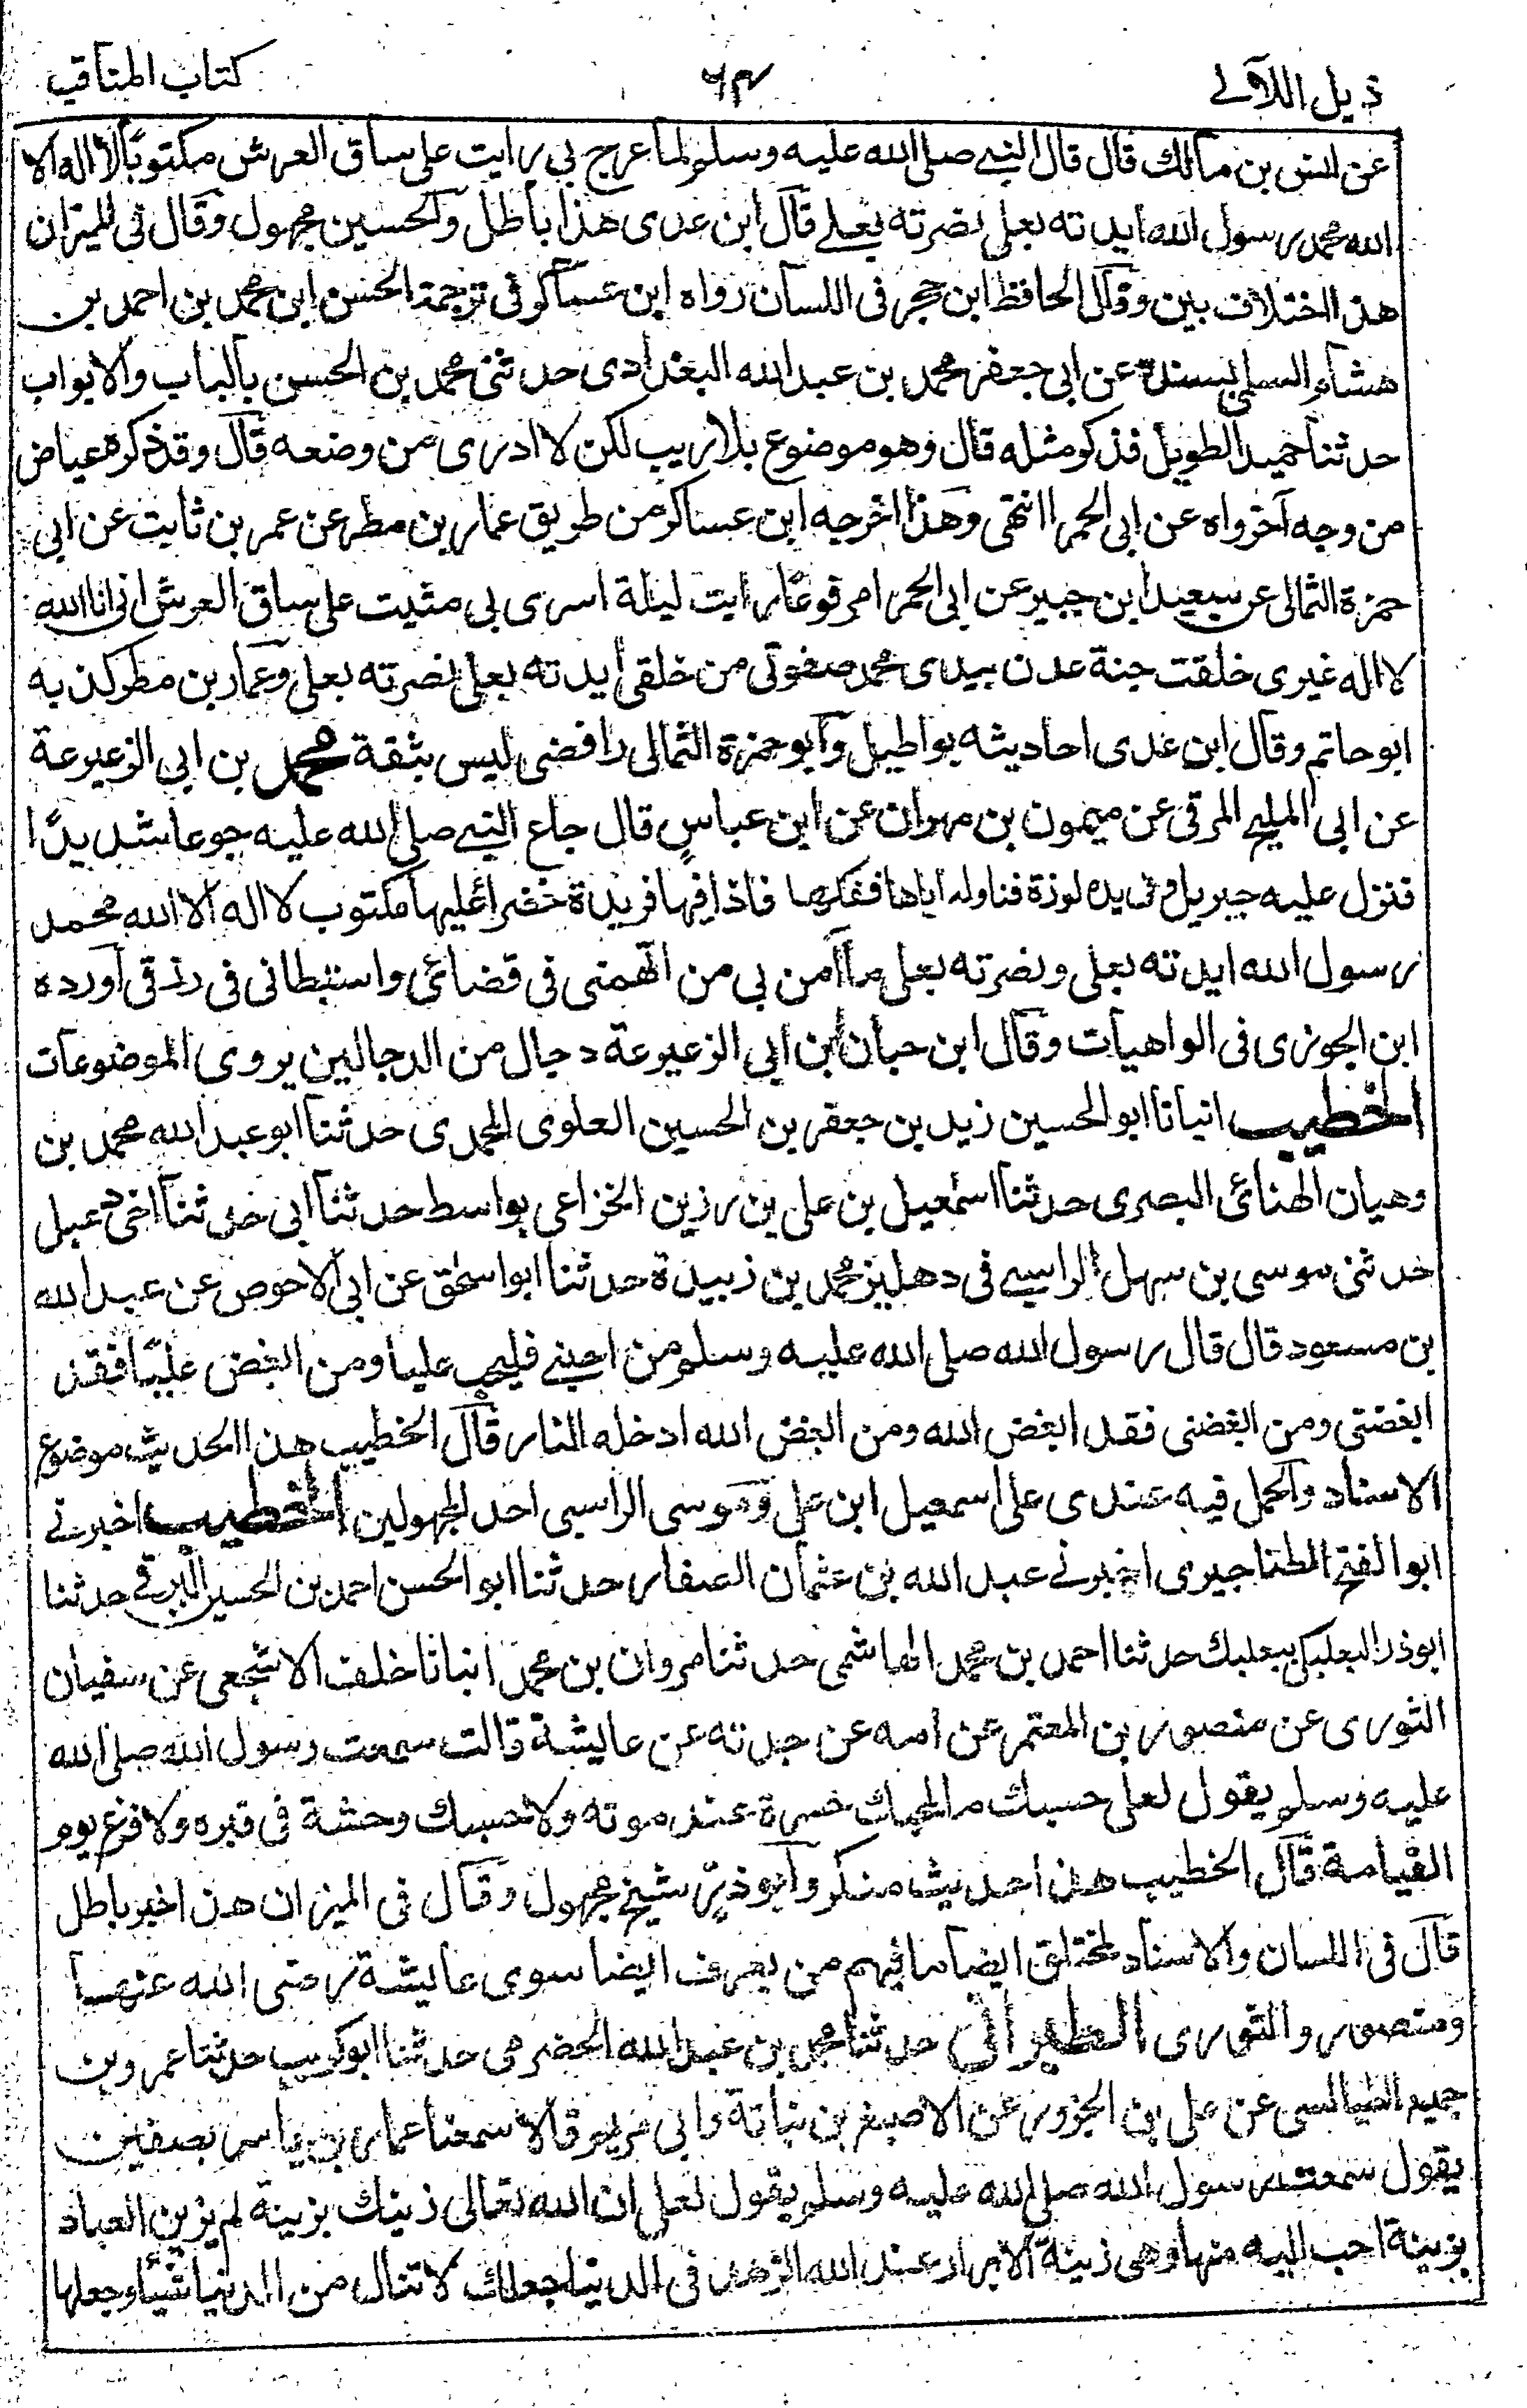 ذيل اللآلے
۶۳
كتاب المناقب
عن انس بن مالك قال قال النبے صلى الله عليه وسلم لما عرج بي رايت على ساق العرش مكتوبًا لا اله الا
الله محمد رسول الله ايدته بعلى نصرته بعلے قال ابن عدى هذا باطل والحسين مجهول وقال في الميزان
هذا اختلاق بين وقال الحافظ ابن حجر فى اللسان رواه ابن عساكر فى ترجمة الحسن ابن محمد بن احمد بن
هشام السلمى بسنده عن ابى جعفر محمد بن عبد الله البغدادى حدثنى محمد بن الحسن بالباب والابواب
حدثنا حميد الطويل فذكر مثله قال وهو موضوع بلا ريب لكن لا ادرى من وضعه قال وقد ذكره عياض
من وجه آخر واه عن ابى الحمرا انتهى وهذا اخرجه ابن عساكر من طريق عمار بن مطر عن عمر بن ثابت عن ابى
حمزة الثمالى عن سعيد ابن جبير عن ابى الحمرا مرفوعًا رايت ليلة اسرى بى مثبت على ساق العرش انى انا الله
لا اله غيرى خلقت جنة عدن بيدى محمد صفوتى من خلقى ايدته بعلى نصرته بعلى وعمار بن مطر كذبه
ابو حاتم وقال ابن عدى احاديثه بواطيل وابو حمزة الثمالى رافضى ليس بثقة محمد بن ابى الزعيزعة
عن ابى المليح الرقى عن ميمون بن مهران عن ابن عباس قال جاع النبے صلى الله عليه جوعا شديدًا
فنزل عليه جبريل وفى يده لوزة فناوله اياها ففكها فاذا فيها فريدة خضرا عليها مكتوب لا اله الا الله محمد
رسول الله ايدته بعلى ونصرته بعلى ما آمن بى من اتهمنى فى قضائى واستبطانى فى رزقى اورده
ابن الجوزى فى الواهيات وقال ابن حبان ابن ابى الزعيزعة دجال من الدجالين يروى الموضوعات
الخطيب انبانا ابو الحسين زيد بن جعفر بن الحسين العلوى المحمدى حدثنا ابو عبد الله محمد بن
وهبان الهنائى البصرى حدثنا اسمعيل بن على بن رزين الخزاعى بواسط حدثنا ابى حدثنا اخى دعبل
حدثنى موسى بن سهل الراسبے فى دهليز محمد بن زبيدة حدثنا ابو اسحق عن ابى الاحوص عن عبد الله
بن مسعود قال قال رسول الله صلى الله عليه وسلم من احبنے فليحب عليا ومن ابغض عليًا فقد
ابغضنى ومن ابغضنى فقد ابغض الله ومن ابغض الله ادخله النار قال الخطيب هذا الحديث موضوع
الاسناد والحمل فيه عندى على اسمعيل ابن على وموسى الراسبى احد المجهولين الخطيب اخبرنے
ابو الفتح الطناجيرى اخبرنے عبد الله بن عثمان الصفار حدثنا ابو الحسن احمد بن الحسين البرقے حدثنا
ابوذر البعلبكى ببعلبك حدثنا احمد بن محمد الهاشمى حدثنا مروان بن محمد انبانا خلف الاشجعى عن سفيان
الثورى عن منصور بن المعتمر عن امه عن جدته عن عايشة قالت سمعت رسول الله صلى الله
عليه وسلم يقول لعلى حسبك ما لمحبك حسرة عند موته ولا حسبك وحشة فى قبره ولا فزع يوم
القيامة قال الخطيب هذا حديث منكر وابو ذر شيخ مجهول وقال فى الميزان هذا خبر باطل
قال فى اللسان والاسناد مختلق ايضا ما فيهم من يعرف ايضا سوى عايشة رضى الله عنها
ومنصور والثورى الطبرانى حدثنا محمد بن عبد الله الحضرمى حدثنا ابو كريب حدثنا عمرو بن
جميع الطيالسى عن على بن الحزور عن الاصبغ بن نباتة وابى مريم قالا سمعنا عمار بن ياسر بصفين
يقول سمعت رسول الله صلى الله عليه وسلم يقول لعلى ان الله تعالى زينك بزينة لم يزين العباد
بزينة احب اليه منها وهى زينة الابرار عند الله الزهد فى الدنيا جعلك لا تنال من الدنيا شيئًا وجعلها